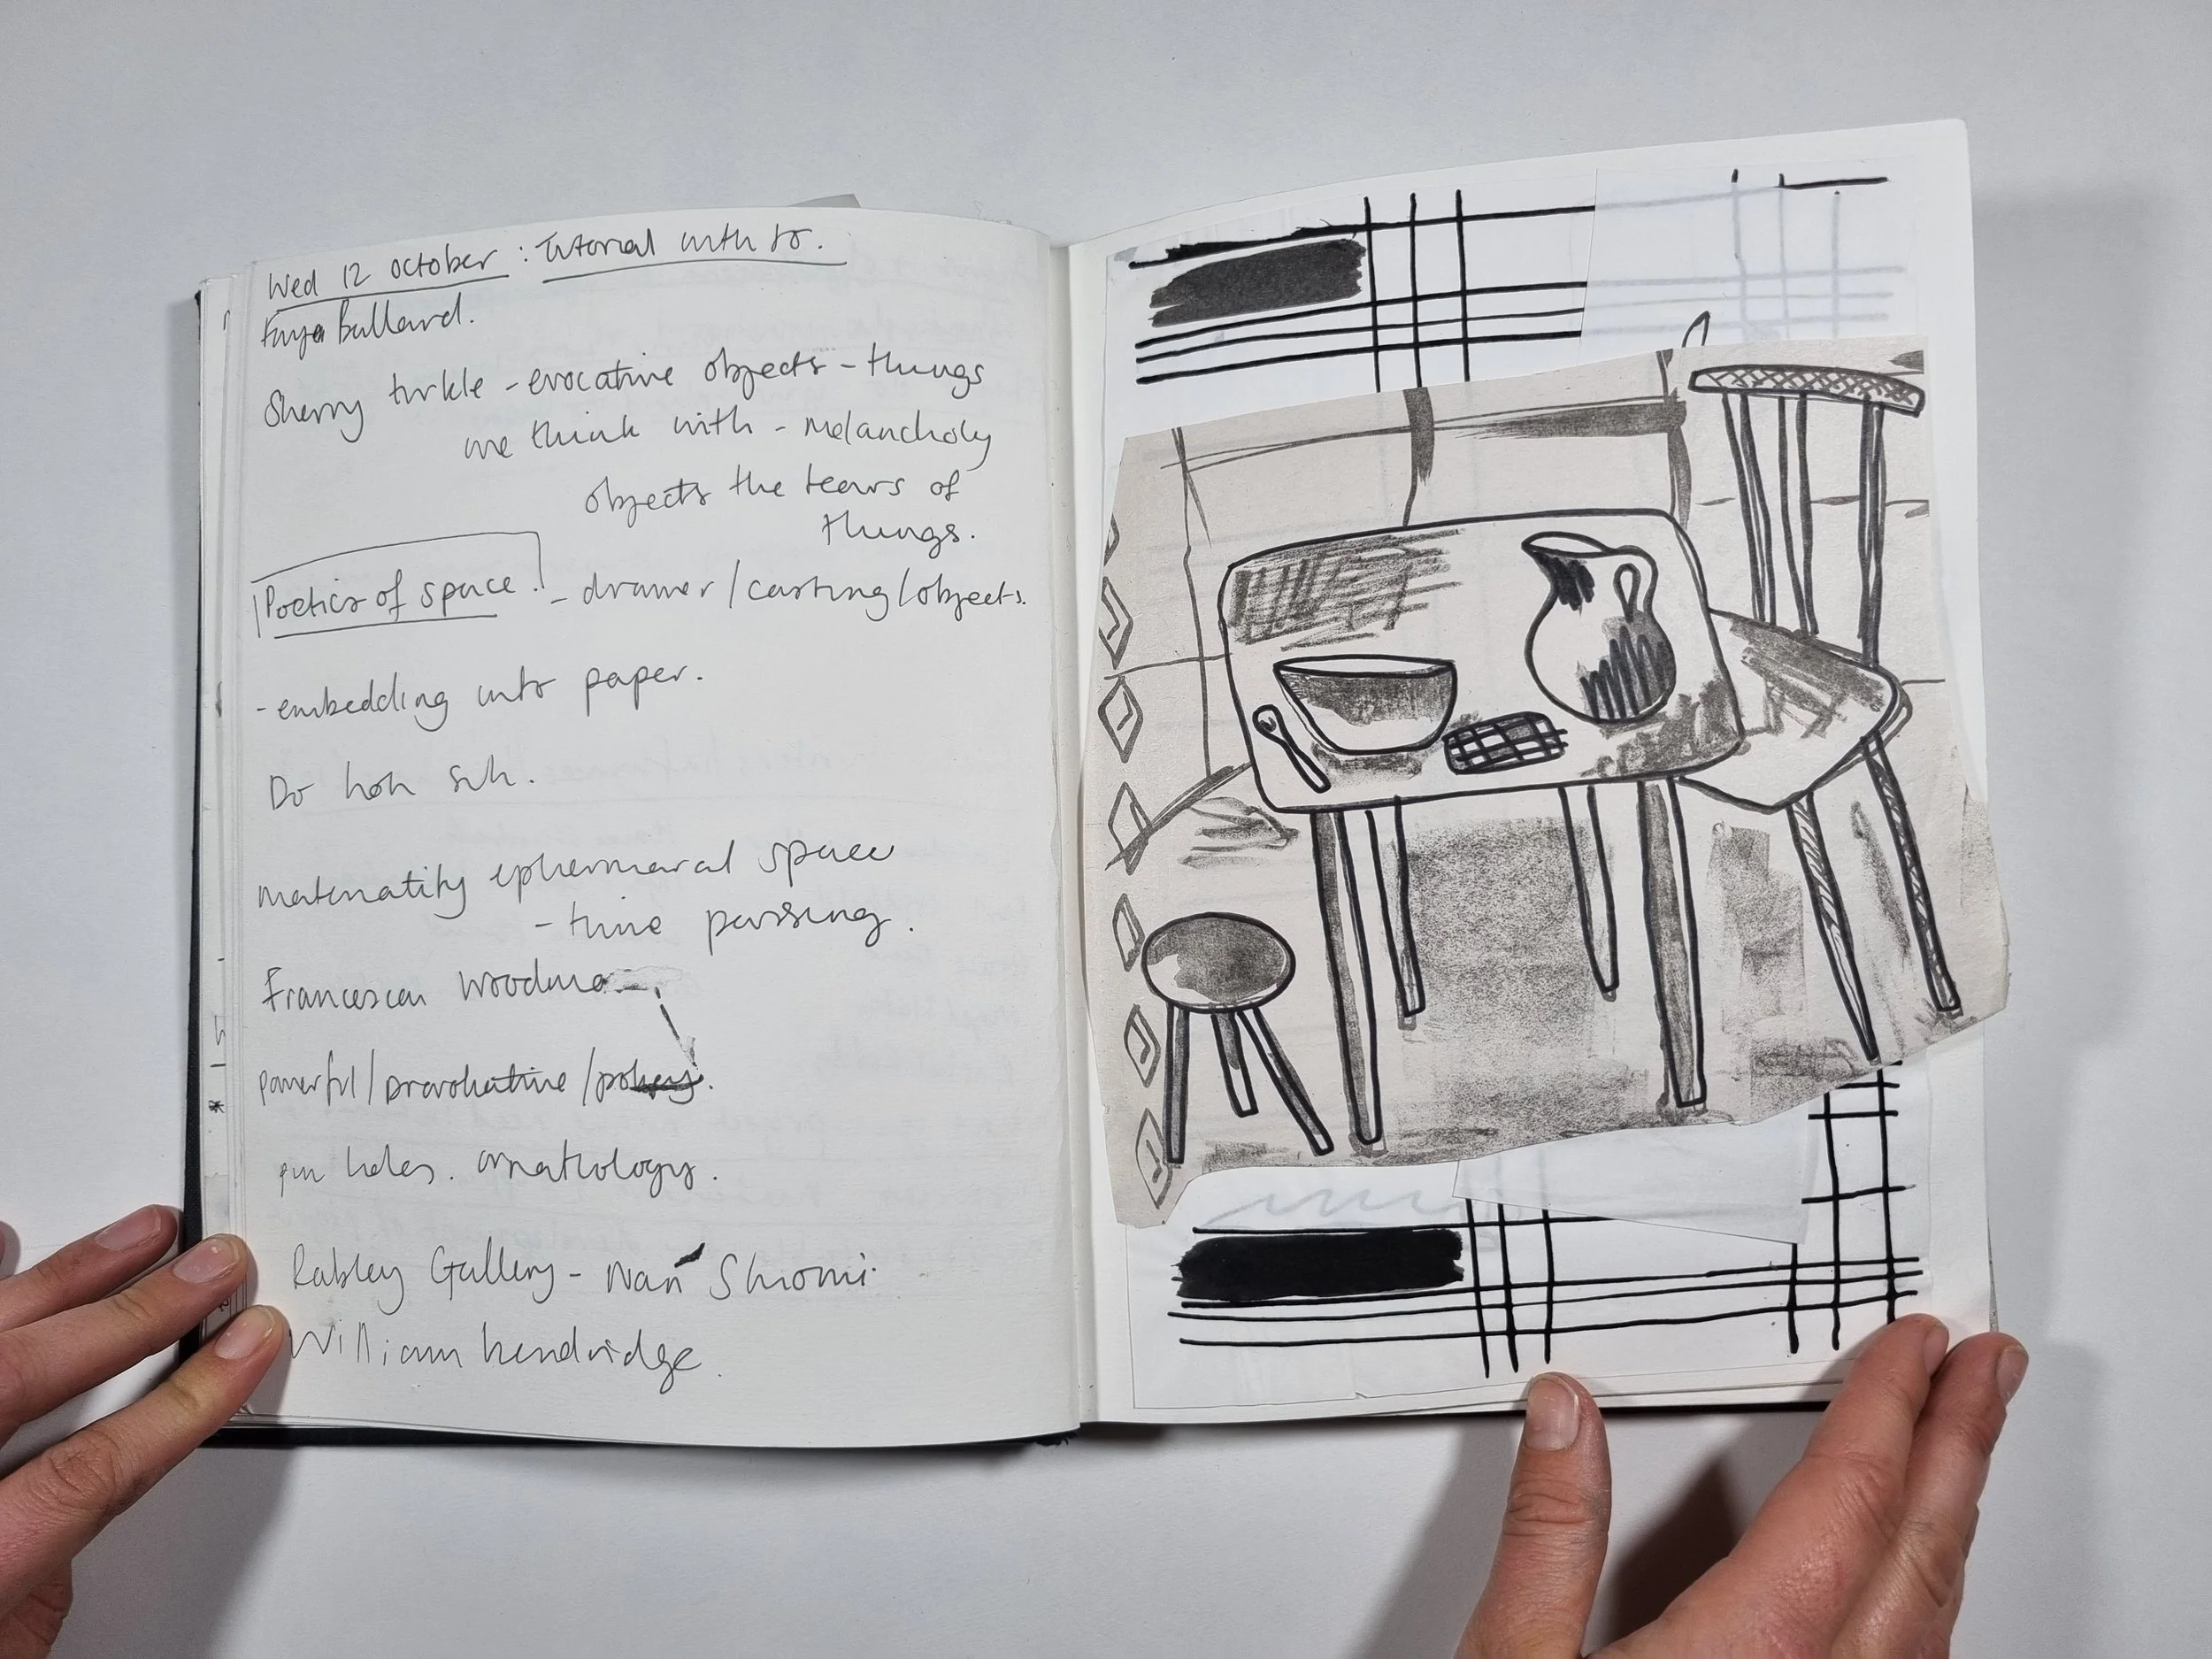 Wed 12 October : Tutorial with Jo.
Faye Bullard.
Sherry turkle - evocative objects - things
we think with - melancholy
objects the tears of
things.
Poetics of space. - drawer/casting/objects.
- embedding into paper.
Do hoh suh.
ephermaral space
- time passing.
Francesca Woodma
powerful/provokative/
pin holes.
Rabley Gallery - Nan Shiomi.
William kendridge.